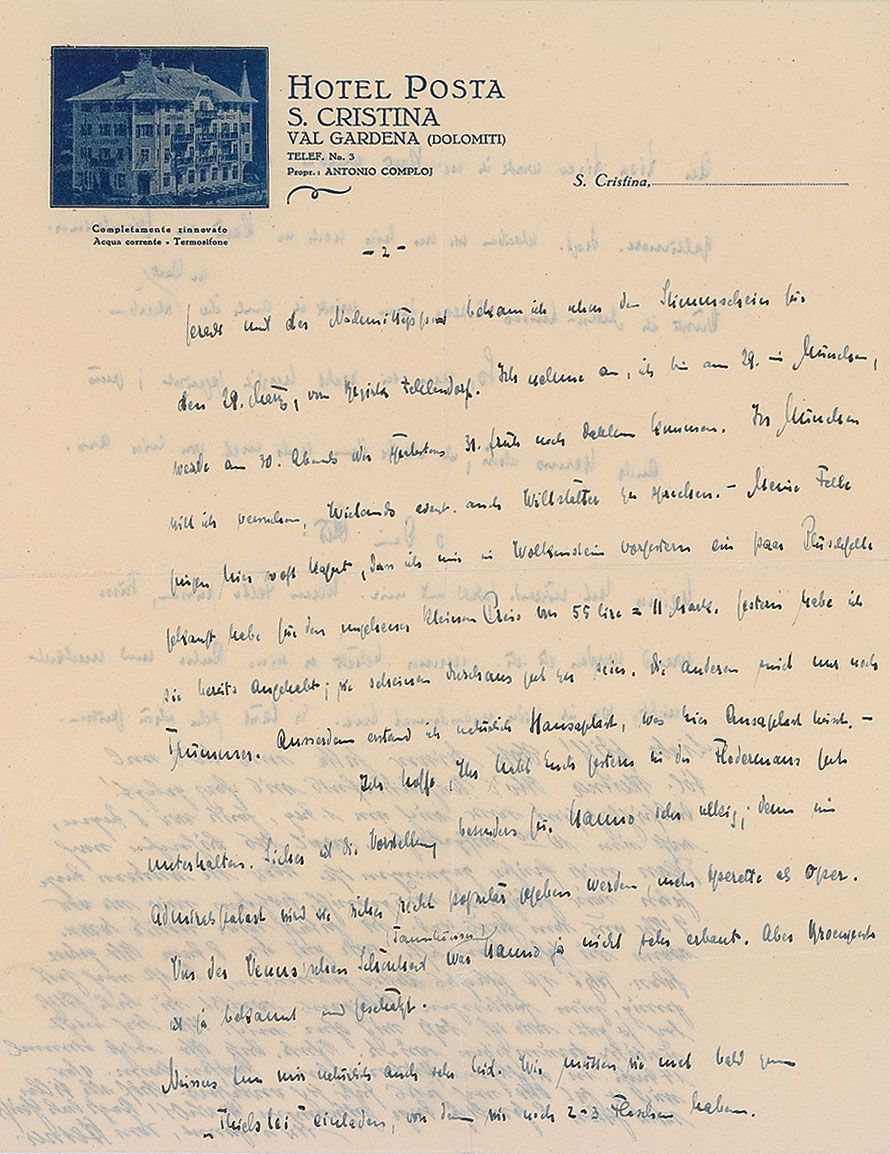 HOTEL POSTA
S. CRISTINA
VAL GARDENA (DOLOMITI)
TELEF. No. 3
Propr.: ANTONIO COMPLOJ
S. Cristina,
Completamente rinnovato
Acqua corrente - Termosifone
- 2 -
gerade mit der Nachmittagspost bekam ich eben den Stimmschein für
den 29. März, vom Bezirk Zehlendorf. Ich nehme an, ich bin am 29. in München,
werde am 30. Abends oder spätestens 31. früh nach Dahlem kommen. In München
will ich versuchen, Wielands event. auch Willstätter zu sprechen. - Meine Felle
gingen hier so oft kaputt, dass ich mir in Wolkenstein vorgestern ein paar Plüschfelle
gekauft habe für den ungeheuer kleinen Preis von 55 lire = 11 Mark. Gestern habe ich
sie bereits angehabt; sie scheinen durchaus gut zu sein. Die anderen sind nur noch
Trümmer. Ausserdem erstand ich natürlich Hansaplast, was hier Ansaplast heisst. -
Ich hoffe, Ihr habt Euch gestern in der Fledermaus gut
unterhalten. Sicher ist die Vorstellung besonders für Hanno sehr ulkig; denn im
Admiralspalast wird sie sicher recht populär gegeben werden, mehr Operette als Oper.
(Tannhäuser)
Von der Venus'schen Schönheit war Hanno ja nicht sehr erbaut. Aber
ist ja bekannt und geschätzt.
tun mir natürlich auch sehr leid. Wir müssen sie mal bald zum
einladen, von dem wir noch 2-3 Flaschen haben.